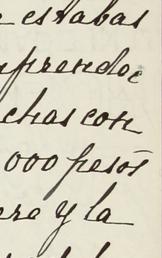 estabas
mprendoe
chas con
000 pesos
ere y la